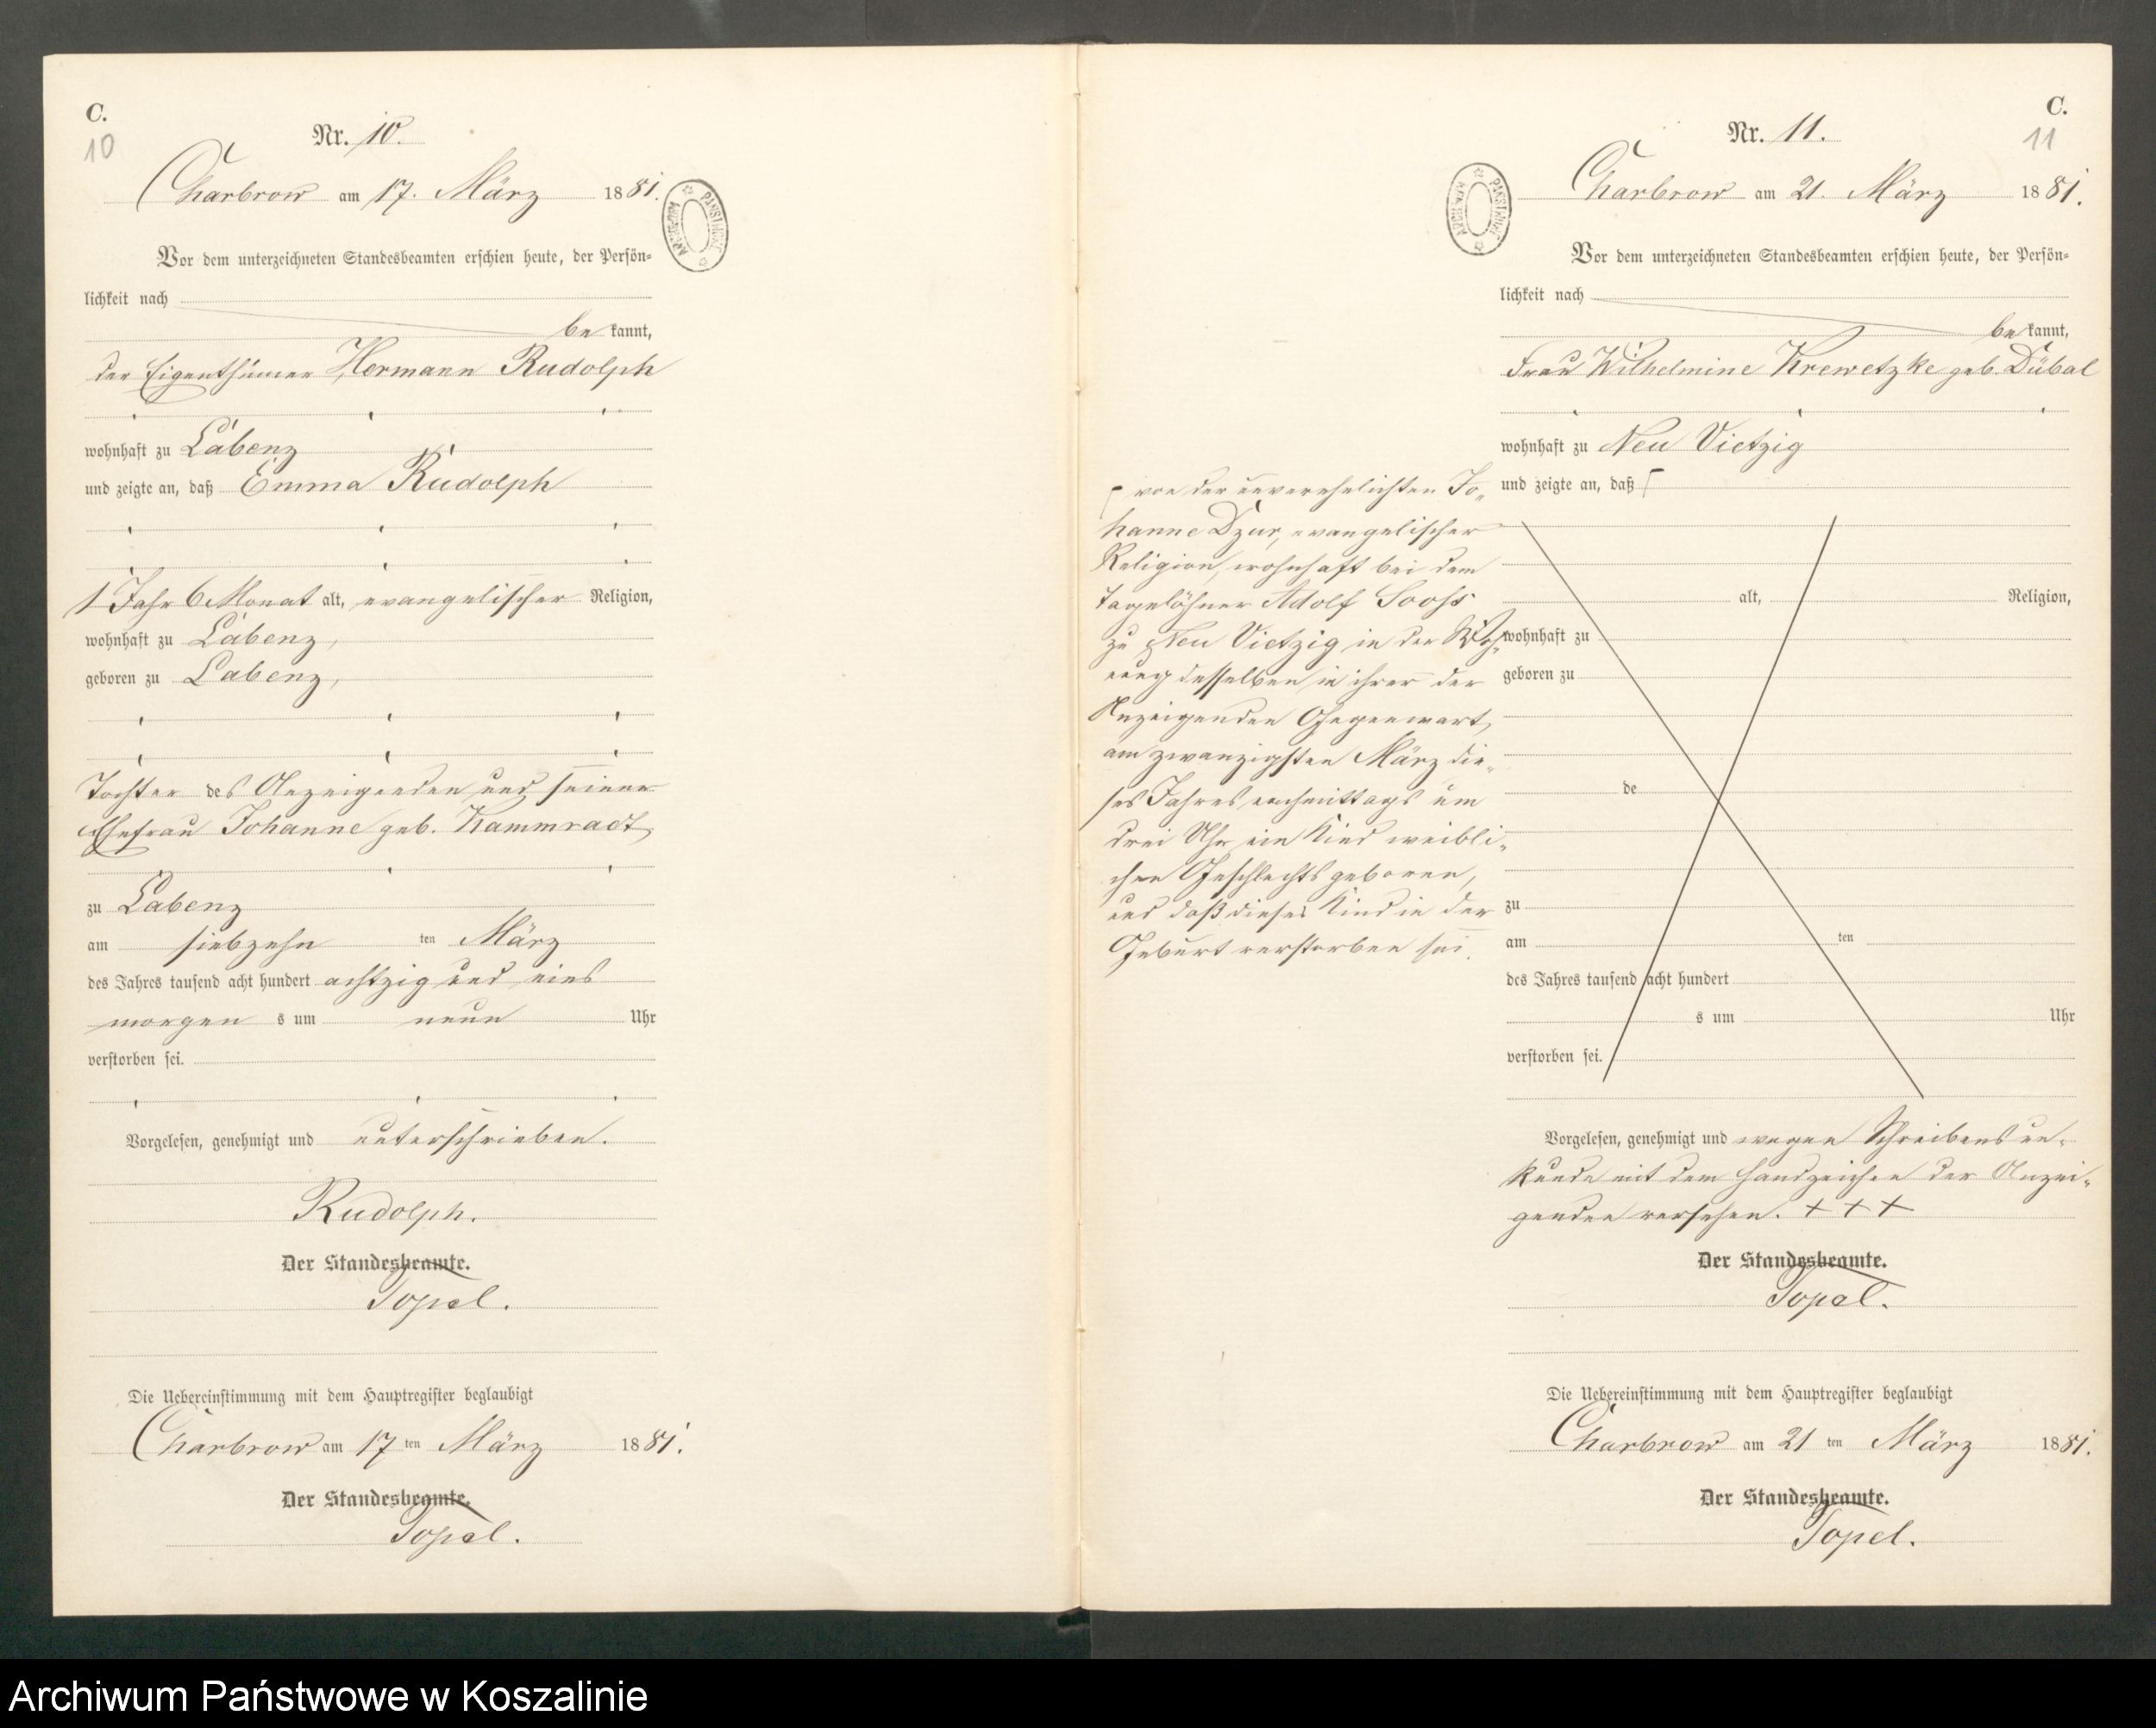 C.
10
Nr. 10.
Charbrow am 17. März 1881.
Vor dem unterzeichneten Standesbeamten erschien heute, der Persön-
lichkeit nach
be kannt,
der Eigenthümer Hermann Rudolph
wohnhaft zu Labenz
und zeigte an, daß Emma Rudolph
1 Jahr 6 Monat alt, evangelischer Religion,
wohnhaft zu Labenz,
geboren zu Labenz,
Tochter des Anzeigenden und seiner
Ehefrau Johanne geb. Kammradt,
zu Labenz
am siebzehn ten März
des Jahres tausend acht hundert achtzig und eins
morgen s um neun Uhr
verstorben sei.
Vorgelesen, genehmigt und unterschrieben.
Rudolph.
Der Standesbeamte.
Topel.
Die Uebereinstimmung mit dem Hauptregister beglaubigt
Charbrow am 17 ten März 1881.
Der Standesbeamte.
Topel.
C.
11
Nr. 11.
ARCHIWUM PAŃSTWOWE
Charbrow am 21. März 1881.
Vor dem unterzeichneten Standesbeamten erschien heute, der Persön-
lichkeit nach
be kannt,
Frau Wilhelmine Krewetzke geb. Dübal
wohnhaft zu Neu Vietzig
und zeigte an, daß ⌈
⌈ von der unverehelichten Jo-
hanne Dzur, evangelischer
Religion, wohnhaft bei dem
Tagelöhner Adolf Sooss
zu Neu Vietzig in der Woh-
nung desselben in ihrer der
Anzeigenden Gegenwart,
am zwanzigsten März die-
ses Jahres nachmittags um
drei Uhr ein Kind weibli-
chen Geschlechts geboren,
und daß dieses Kind in der
Geburt verstorben sei.
alt, Religion,
wohnhaft zu
geboren zu
de
zu
am ten
des Jahres tausend acht hundert
s um Uhr
verstorben sei.
Vorgelesen, genehmigt und wegen Schreibensun-
kunde mit dem Handzeichen der Anzei-
genden versehen. + + +
Der Standesbeamte.
Topel.
Die Uebereinstimmung mit dem Hauptregister beglaubigt
Charbrow am 21 ten März 1881.
Der Standesbeamte.
Topel.
Archiwum Państwowe w Koszalinie